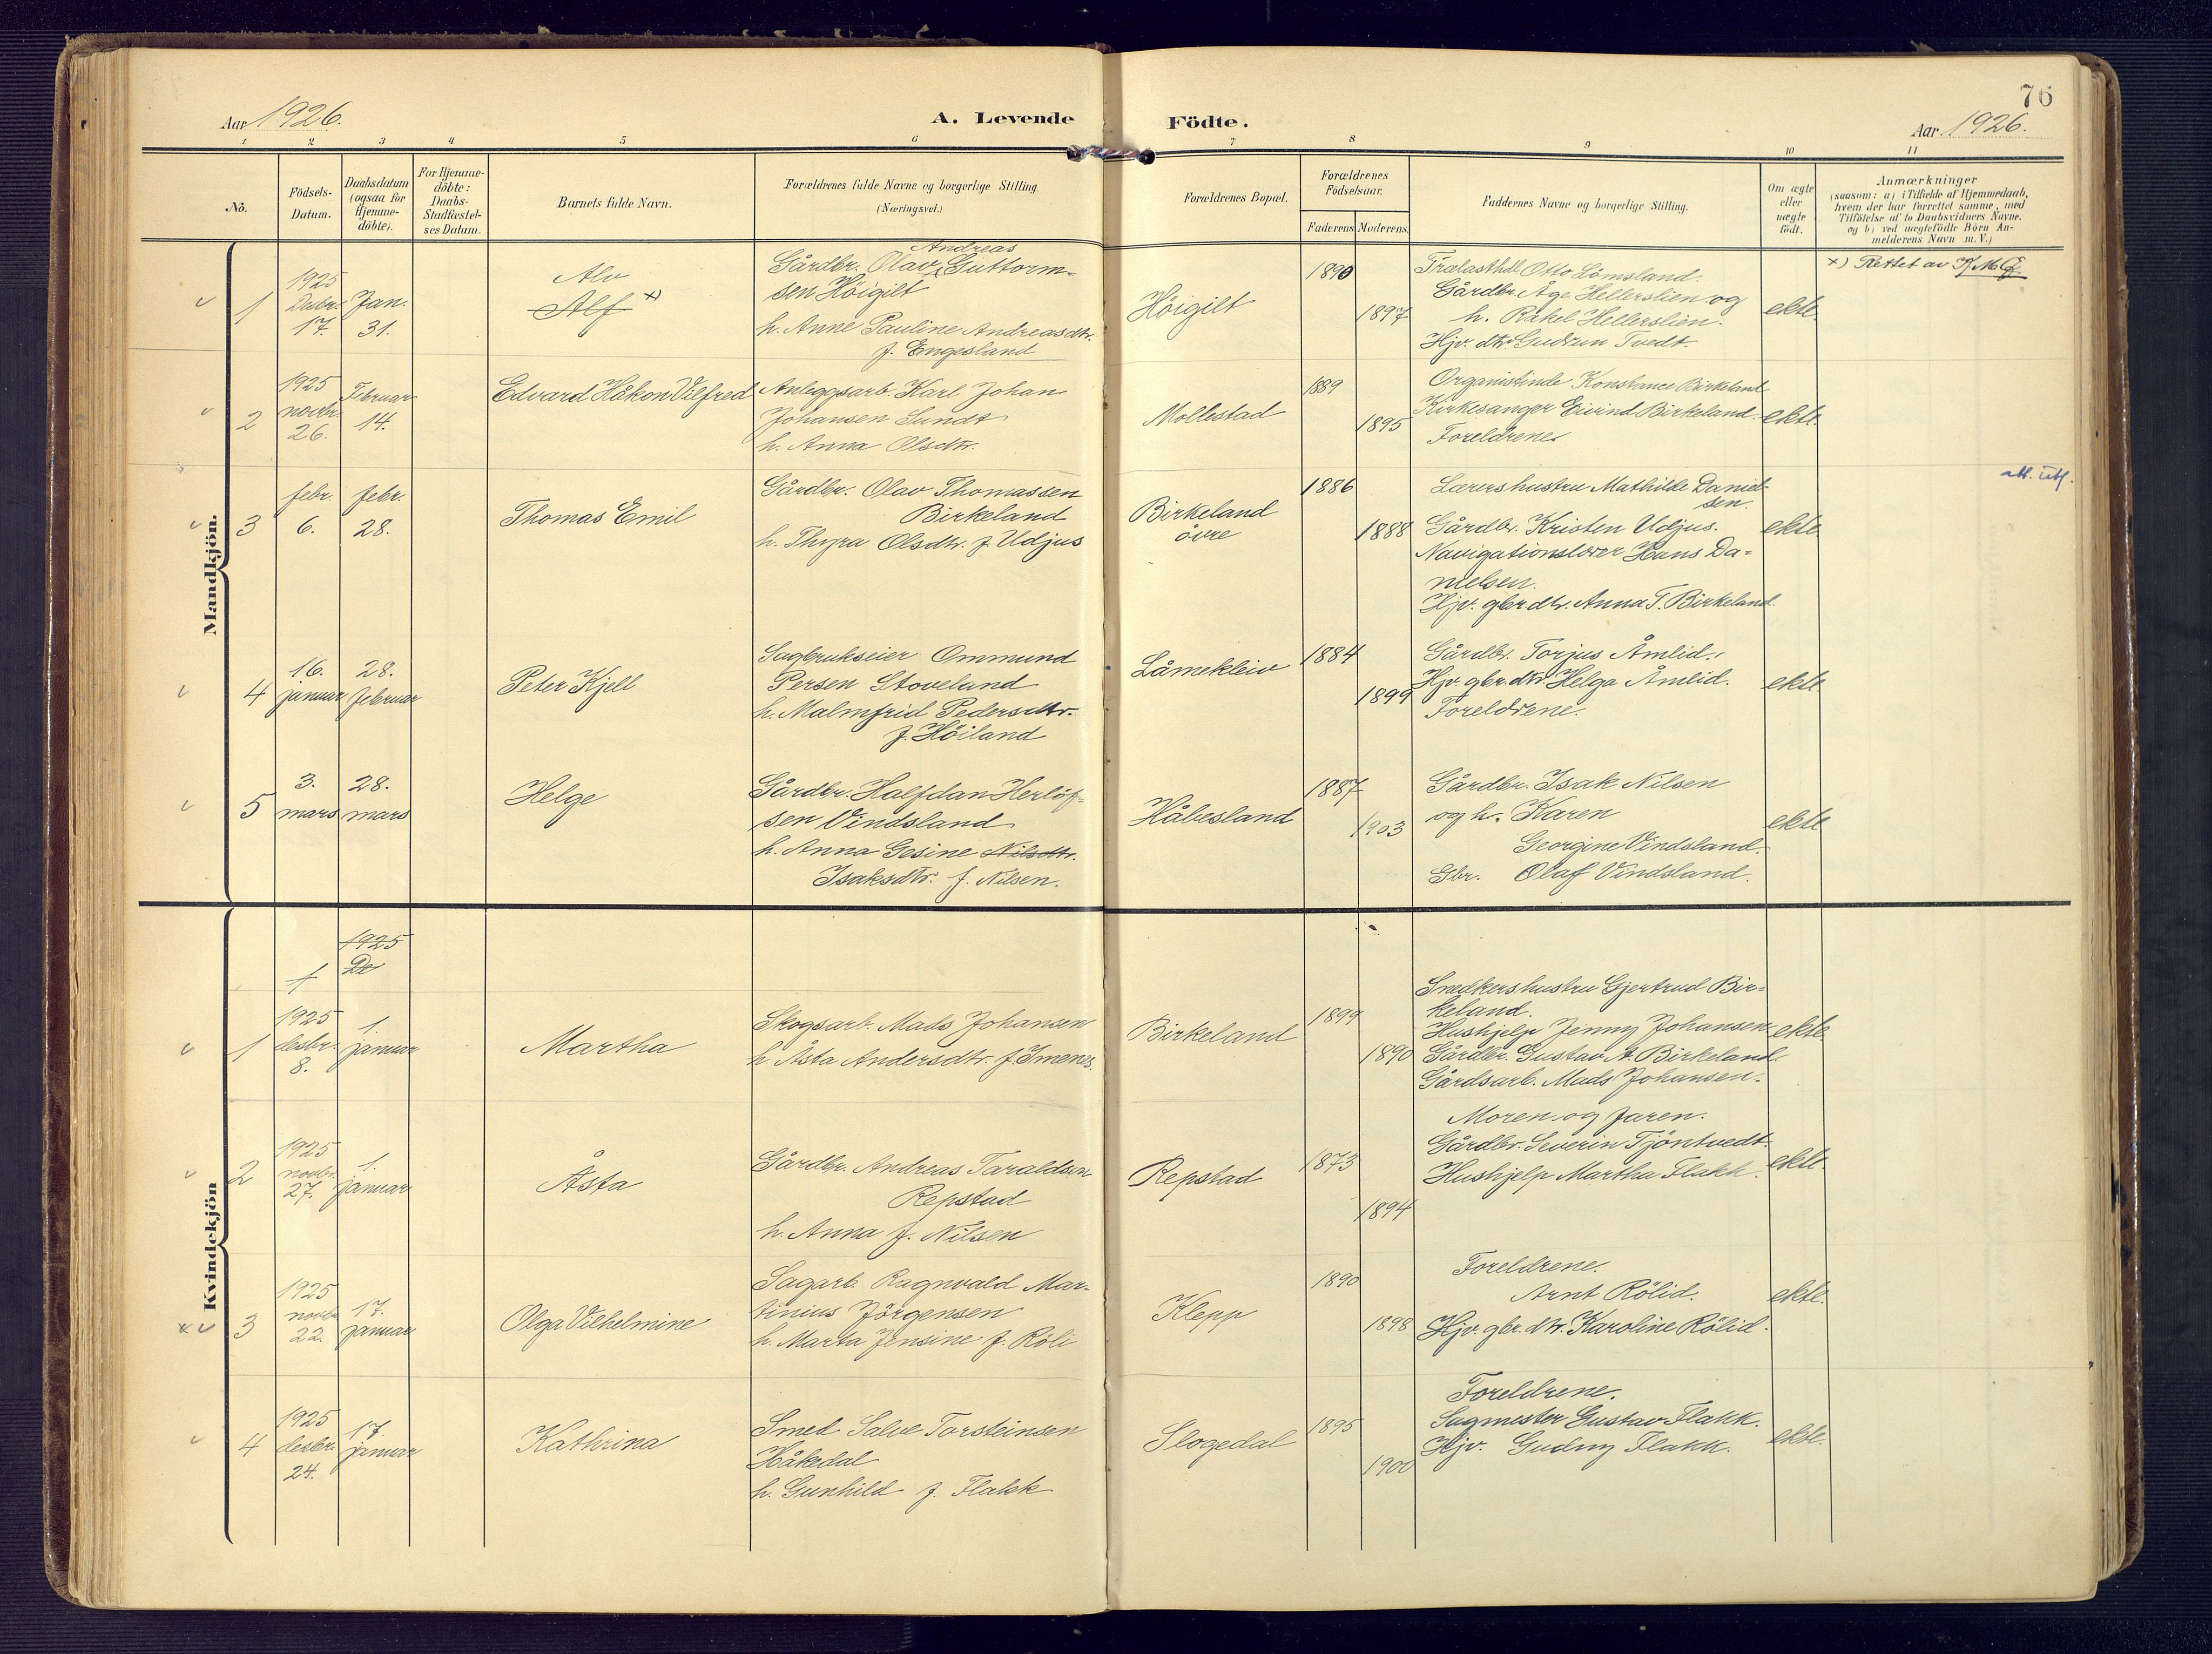 76
Aar 1926.
A. Levende Födte.
Aar 1926.
1 2 3 4 5 6 7 8 9 10 11
No.
Födsels-
Datum.
Daabsdatum
(ogsaa for
Hjemme-
döbte).
For Hjemme-
döbte:
Daabs-
Stadfæstel-
ses Datum.
Barnets fulde Navn.
Forældrenes fulde Navne og borgerlige Stilling.
(Næringsvei.)
Forældrenes Bopæl.
Forældrenes
Födselsaar.
Faderens
Moderens
Faddernes Navne og borgerlige Stilling.
Om ægte
eller
uægte
født.
Anmærkninger
(saasom: a) i Tilfælde af Hjemmedaab,
hvem der har forrettet samme, med
Tilföielse af to Daabsvidners Navne.
og b) ved uægtefödte Börn An-
melderens Navn m. V.)
Mandkjön.
1
1925
Desbr.
17.
Jan.
31.
Alv
Alf x)
Andreas
Gårdbr. Olav Guttorm-
sen Höigilt
h. Anne Pauline Andreasdtr.
f. Engesland
Höigilt
1890
1897
Trælasthdl. Otto Lömsland.
Gårdbr. Åge Hellerslien og
h. Rakel Hellerslien.
Hjv. dtr. Gudrun Tvedt.
ekte.
x) Rettet av
2
1925
novbr.
26.
Februar
14.
Edvard Håkon Vilfred
Anleggsarb. Karl Johan
Johansen Sundt
h. Anna Olsdtr.
Mollestad
1889
1895
Organistinde Konstance Birkeland
Kirkesanger Eivind Birkeland.
Foreldrene
ekte.
3
febr.
6.
febr.
28.
Thomas Emil
Gårdbr. Olav Thomassen
Birkeland
h. Thyra Olsdtr. f. Udjus
Birkeland
övre
1886
1888
Lærershustru Mathilde Daniel-
sen.
Gårdbr. Kristen Udjus.
Navigationslærer Hans Da-
nielsen.
Hjv. gbrdtr. Anna T. Birkeland.
ekte
att. utst.
4
16.
januar
28.
februar
Peter Kjell
Sagbrukseier Ommund
Persen Stoveland
h. Malmfrid Pedersdtr.
f. Höiland
Låmekleiv
1884
1899
Gårdbr. Torjus Åmlid.
Hjv. gbr.dtr. Helga Åmlid.
Foreldrene.
ekte
5
3.
mars
28.
mars
Helge
Gårdbr. Halfdan Herlöf-
sen Vindsland
h. Anna Gesine Nilsdtr.
Isaksdtr. f. Nilsen.
Håbesland
1887
1903
Gårdbr. Isak Nilsen
og h. Karen
Georgine Vindsland.
Gbr. Olaf Vindsland.
ekte
Kvindekjön
1
1925
De
1
1925
desbr.
8.
1.
januar
Martha
Skogsarb. Mads Johansen
h. Åsta Andersdtr. f. Imenes.
Birkeland
1899
1890
Snedkershustru Gjertrud Bir-
keland.
Hushjelp Jenny Johansen
Gårdbr. Gustav A. Birkeland.
Gårdsarb. Mads Johansen.
ekte.
2
1925
novbr.
27.
1.
januar
Åsta
Gårdbr. Andreas Taraldsen
Repstad
h. Anna f. Nilsen
Repstad
1873
1894
Moren og faren.
Gårdbr. Severin Tjöntvedt.
Hushjelp Martha Flakk.
ekte.
3
1925
novbr.
22.
17.
januar
Olga Vilhelmine
Sagarb. Ragnvald Mar-
tinius Jörgensen
h. Marta Jensine f. Röli
Klepp
1890
1898
Foreldrene.
Arnt Rölid.
Hjv. gbr. dtr. Karoline Rölid.
ekte.
4
1925
desbr.
24.
17.
januar
Kathrina
Smed Salve Torsteinsen
Håkedal
h. Gunhild f. Flakk
Slogedal
1895
1900
Foreldrene.
Sagmester Gustav Flakk.
Hjv. Gudny Flakk.
ekte.